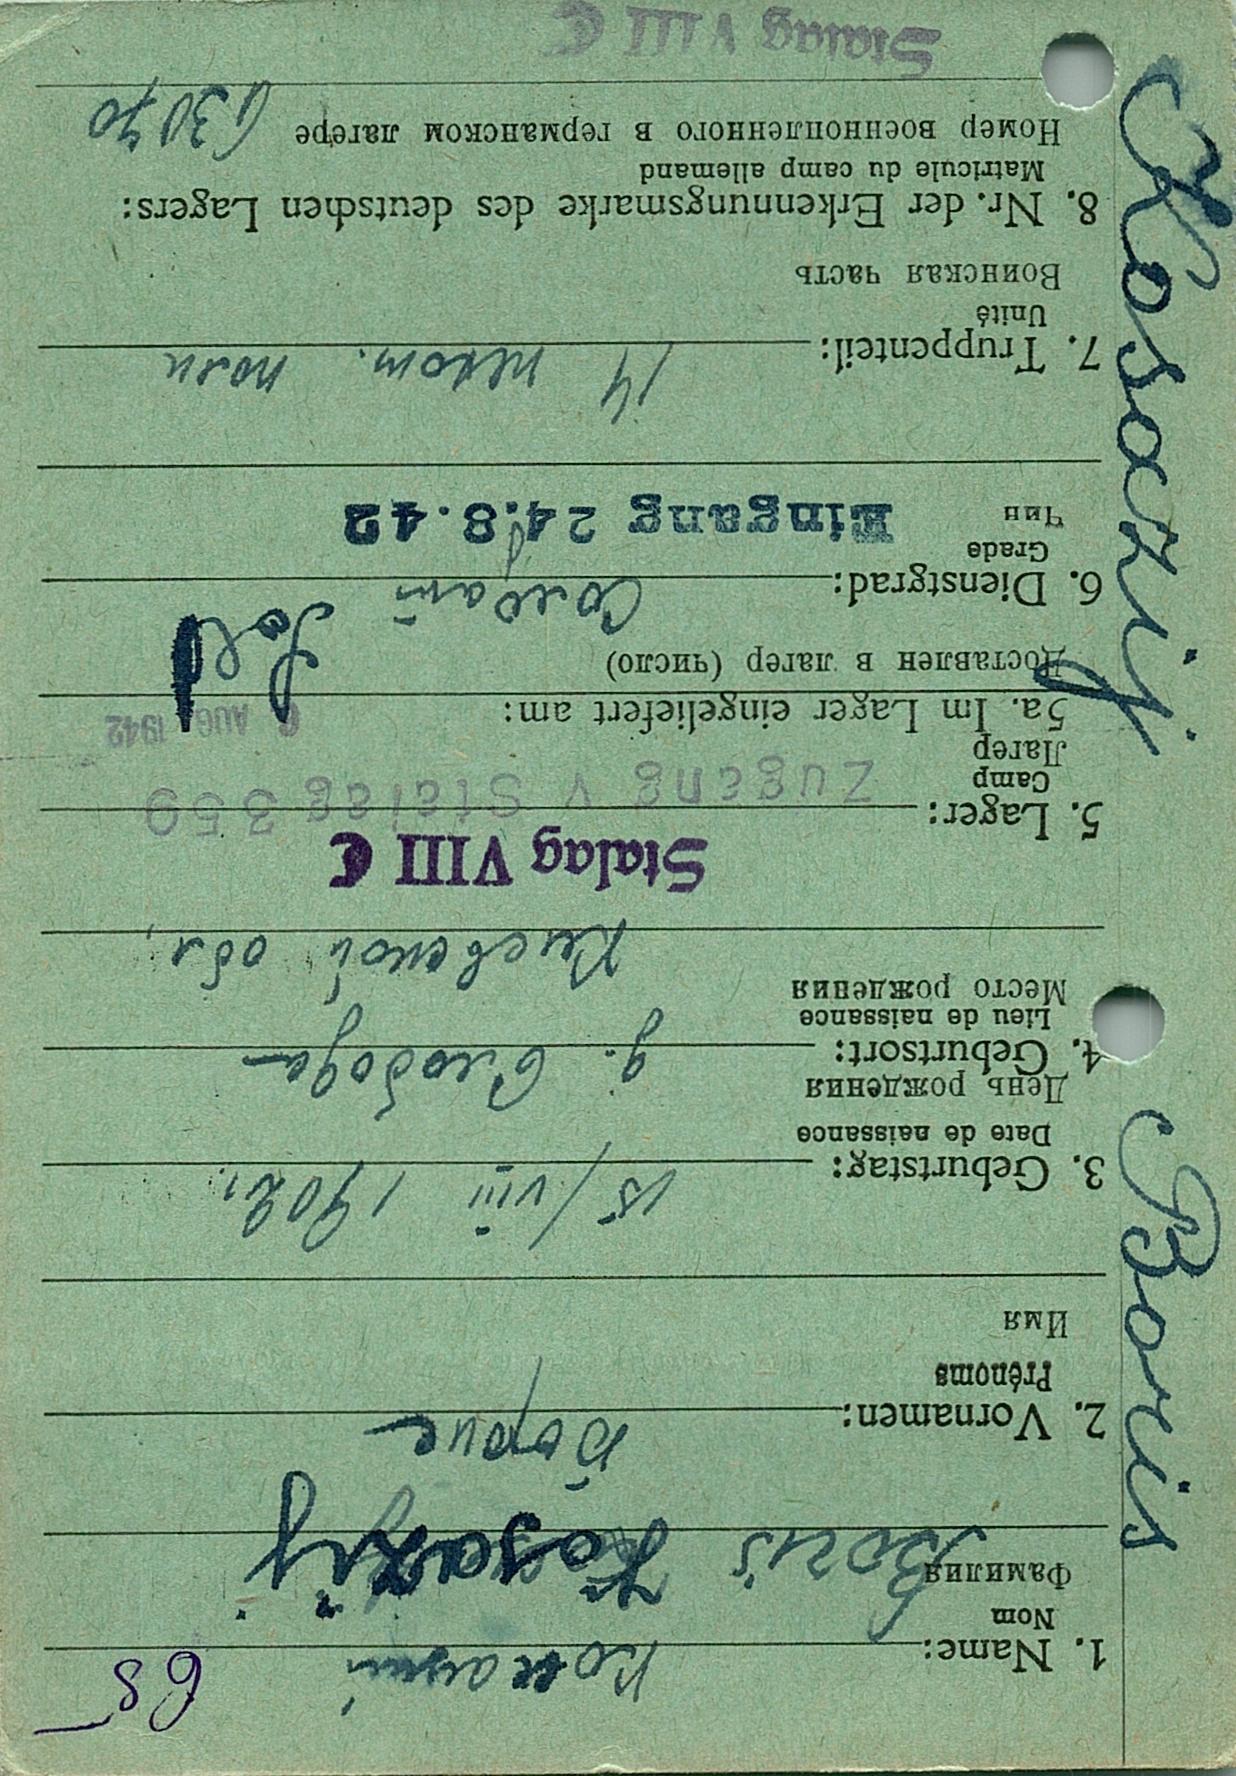 68
1. Name:
Nom
Фамилия
Boris
2. Vornamen: Борис
Prénoms
Имя
3. Geburtstag: 15/VIII 1902.
Date de naissance
День рождения
4. Geburtsort: д. Слобода
Lieu de naissance
Место рождения
Киевской обл.
Stalag VIII C
5. Lager: Zugang v Stalag 359
Camp
Лагерь
5a. Im Lager eingeliefert am: 6 AUG 1942
Доставлен в лагерь (число)
6. Dienstgrad: Солдат Sold
Grade
Чин
Eingang 24.8.42
7. Truppenteil: 14 пехот. полк
Unité
Воинская часть
8. Nr. der Erkennungsmarke des deutschen Lagers:
Matricule du camp allemand
Номер военнопленного в германском лагере 63070
Stalag VIII C
Boris Kosazkij